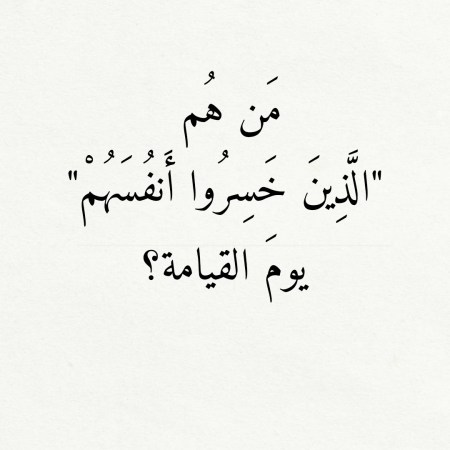 مَن هُم
"الَّذِينَ خَسِرُوا أَنفُسَهُمْ"
يومَ القيامة؟